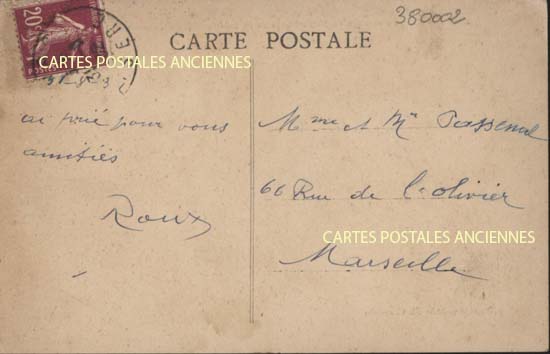 380002
20c
CARTE POSTALE
CARTES POSTALES ANCIENNES
ai prié pour vous
amitiés
Roux
Mme et Mr
66 Rue de l'olivier
CARTES POSTALES ANCIENNES
Marseille